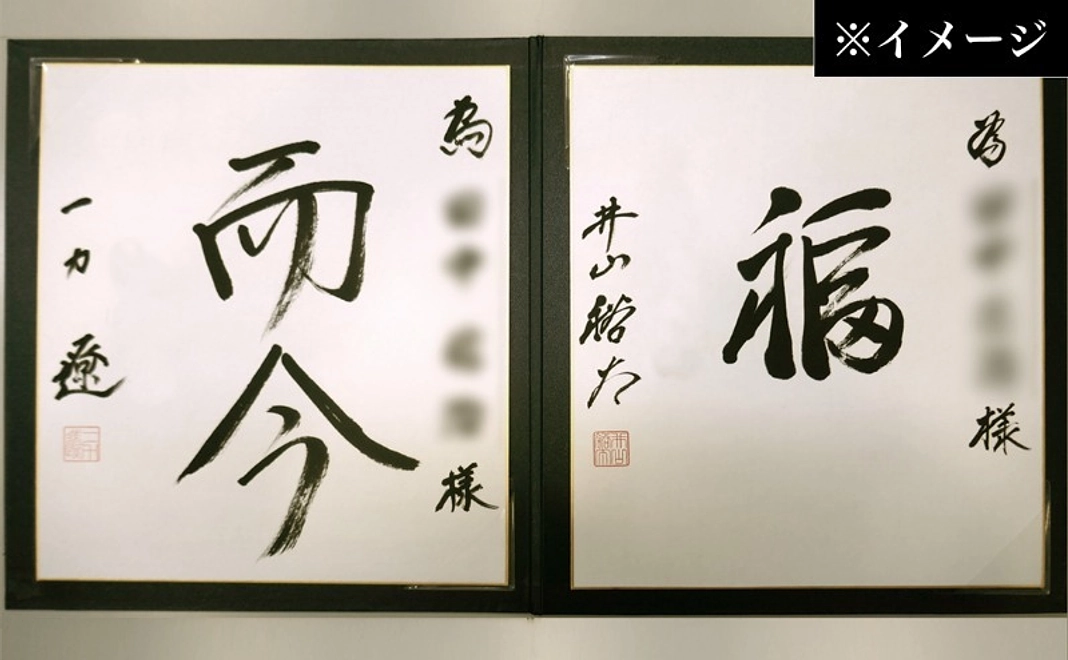 ※イメージ
為
様
福
井山裕太
為
様
而今
一力遼